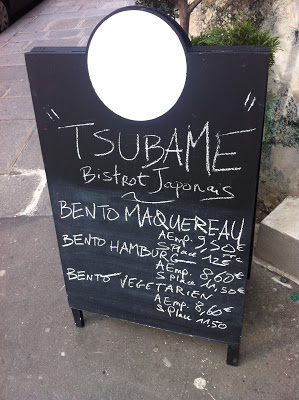 TSUBAME
Bistrot Japonais
BENTO MAQUEREAU
A Emp. 9,50€
S Place 12€
BENTO HAMBURG
A Emp. 8,60€
S place 11,50€
BENTO VEGETARIEN
A Emp. 8,60€
S Place 11,50